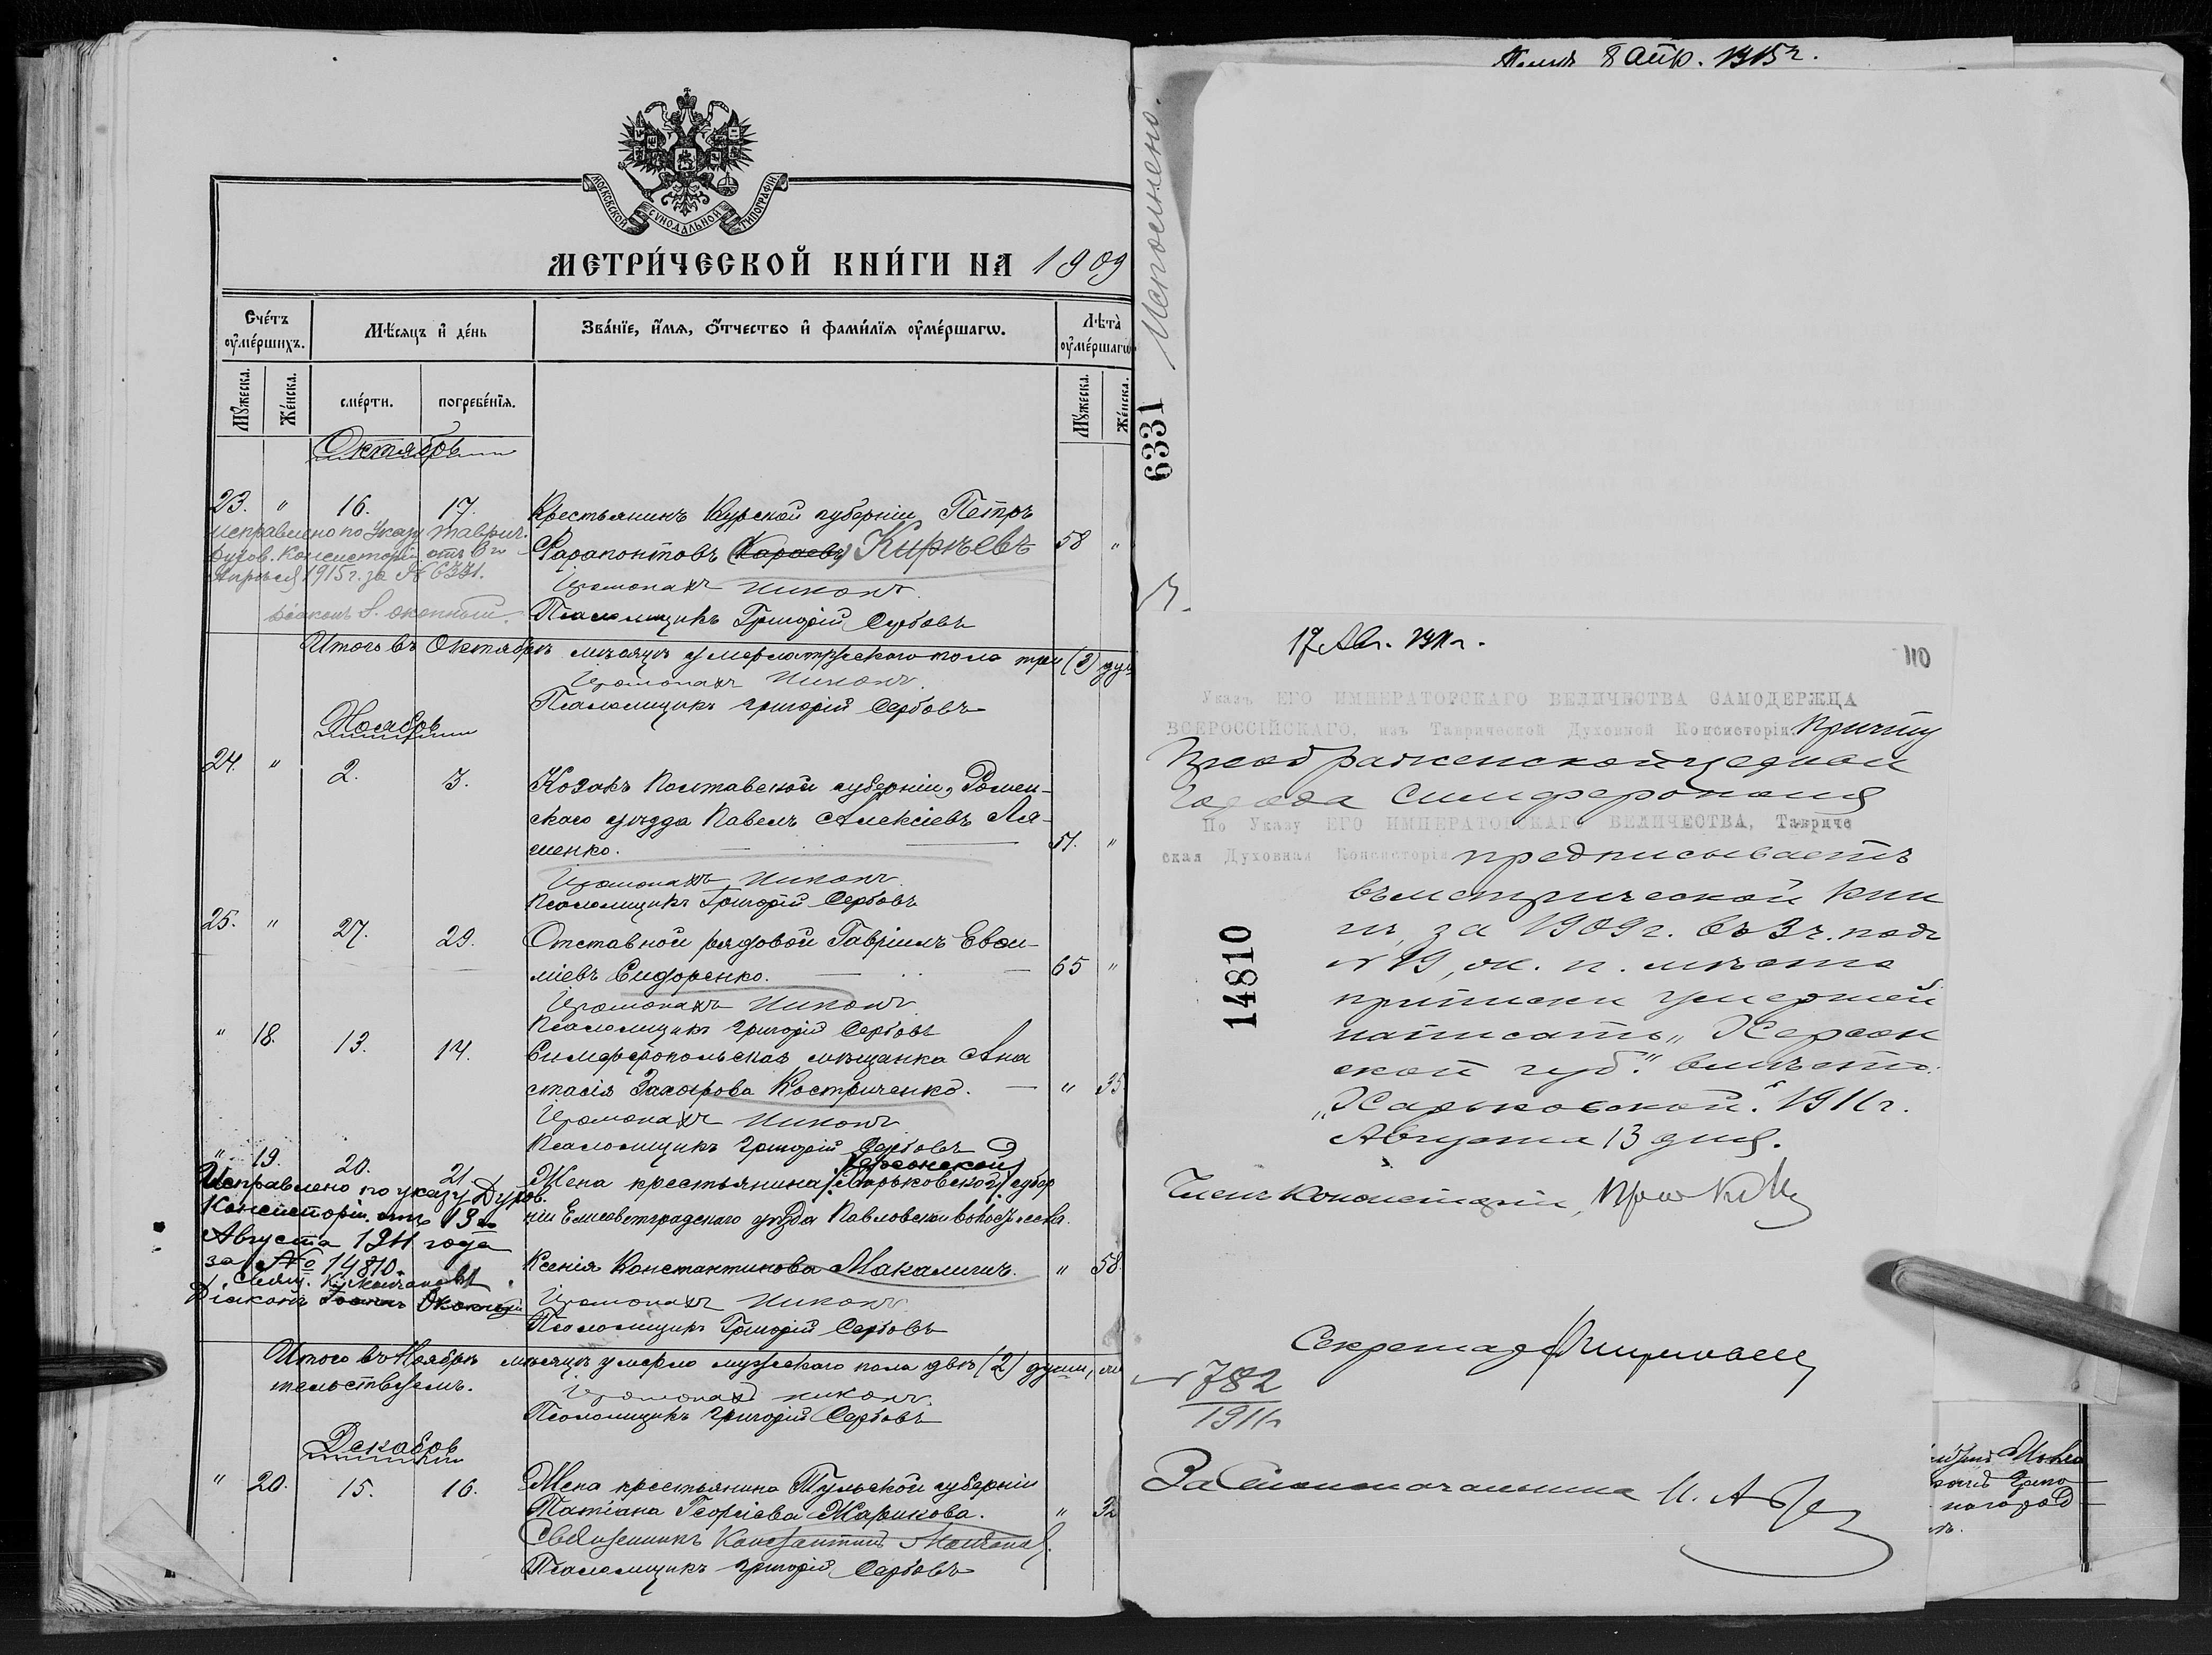 МОСКОВСКОЙ СУНОДАЛЬНОЙ ТИПОГРАФІИ
МЕТРИ́ЧЕСКОЙ КНИ́ГИ НА 1909
Сче́тъ ᲂу҆ме́ршихъ.
Мѣ́сяцъ и҆ де́нь
Зва́нїе, и҆́мя, ѻ҆́тчество и҆ фами́лїя ᲂу҆ме́ршагѡ.
Лѣ́та ᲂу҆ме́ршагѡ
Му́жеска.
Же́нска.
сме́рти.
погребе́нїя.
Му́жеска.
Же́нска.
Октябрь
23. " 16. 17. Крестьянинъ Курской губерніи Петръ
Фарапонтовъ (Караевъ) Кирѣевъ 58 "
Исправлено по Указу Таврич.
Духов. Консисторіи отъ 8го
Апрѣля 1915 г. за № 6331.
Діаконъ
Іеромонахъ Никонъ.
Псаломщикъ Григорій Сербовъ
Итого въ Октябрѣ мѣсяцѣ умерло мужескаго пола три (3) душ
Іеромонахъ Никонъ.
Псаломщикъ Григорій Сербовъ
Ноябрь
24. " 2. 3. Козакъ Полтавской губерніи, Ромен-
скаго уѣзда Павелъ Алексіевъ Ля-
шенко. 51. "
Іеромонахъ Никонъ.
Псаломщикъ Григорій Сербовъ
25. " 27. 29. Отставной рядовой Гавріилъ Евѳи-
міевъ Сидоренко. 65 "
Іеромонахъ Никонъ
Псаломщикъ Григорій Сербовъ
" 18. 13. 14. Симферопольская мѣщанка Ана
стасія Захарова Костриченко. " 35
Іеромонахъ Никонъ
Псаломщикъ Григорій Сербовъ
Херсонской
" 19. 20. 21. Жена крестьянина (Харьковской) губер
ніи Елисаветградскаго уѣзда Павловской волости
Ксенія Константинова Макалишъ. " 58
Исправлено по указу Духов.
Консисторіи отъ 13го
Августа 1911 года
за № 14810.
Свящ.
Діаконъ
Іеромонахъ Никонъ.
Псаломщикъ Григорій Сербовъ
Итого въ Ноябрѣ мѣсяцѣ умерло мужескаго пола двѣ (2) души,
Іеромонахъ Никонъ.
Псаломщикъ Григорій Сербовъ
Декабрь
" 20. 15. 16. Жена крестьянина Тульской губерніи
Татіана Георгіева Жарикова. " 32
Священникъ Константинъ
Псаломщикъ Григорій Сербовъ
8 Апр. 1915 г.
Исполнено.
6331
17 Авг. 1911 г.
110
Указъ ЕГО ИМПЕРАТОРСКАГО ВЕЛИЧЕСТВА САМОДЕРЖЦА
ВСЕРОССІЙСКАГО, изъ Таврической Духовной Консисторіи. Причту
Преображенской церкви
города Симферополя
По Указу ЕГО ИМПЕРАТОРСКАГО ВЕЛИЧЕСТВА, Тавриче
ская Духовная Консисторія предписываетъ
въ метрической кни
гѣ за 1909 г. въ 3 ч. подъ
№ 19, ж. п. мѣсто
приписки умершей
написать „Херсон
ской губ.“ вмѣсто
„Харьковской“. 1911 г.
Августа 13 дня.
14810
Членъ Консисторіи,
Секретарь
№ 782
1911 г.
За Столоначальника